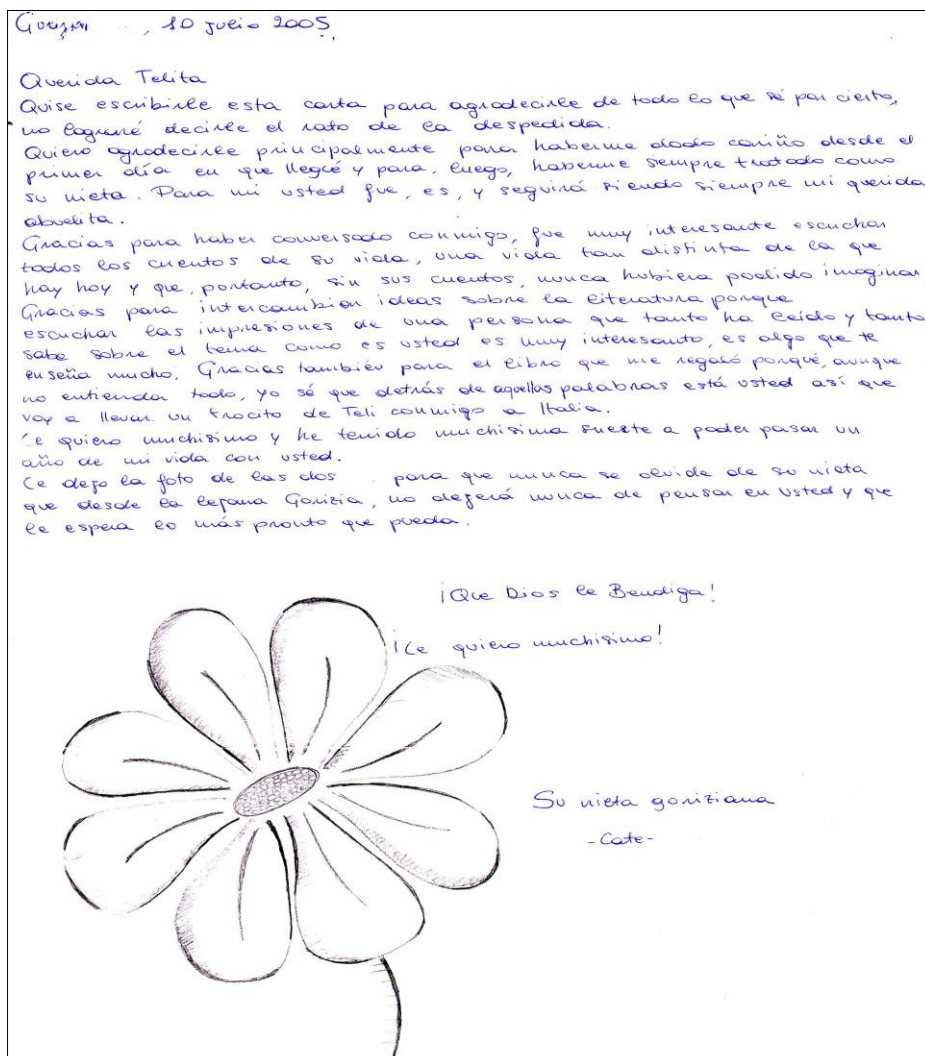 , 10 julio 2005.
Querida Telita
Quise escribirle esta carta para agradecirle de todo lo que sé por cierto,
no lograré decirle el rato de la despedida.
Quiero agradecirle principalmente para haberme dado cariño desde el
primer día en que llegué y para, luego, haberme siempre tratado como
su nieta. Para mi usted fue, es, y seguirá siendo siempre mi querida
abuelita.
Gracias para haber conversado conmigo, fue muy interesante escuchar
todos los cuentos de su vida, una vida tan distinta de la que
hay hoy y que, portanto, sin sus cuentos, nunca hubiera podido imaginar
Gracias para intercambiar ideas sobre la literatura porque
escuchar las impresiones de una persona que tanto ha leído y tanto
sabe sobre el tema como es usted es muy interesante, es algo que te
enseña mucho. Gracias también para el libro que me regaló porqué, aunque
no entienda todo, yo sé que detrás de aquellas palabras está usted así que
voy a llevar un trocito de Teli conmigo a Italia.
Le quiero muchisimo y he tenido muchisima suerte a poder pasar un
año de mi vida con usted.
Le dejo la foto de las dos para que nunca se olvide de su nieta
que desde la lejana Gorizia, no dejerá nunca de pensar en usted y que
le espera lo más pronto que pueda.
¡Que Dios le Bendiga!
¡Le quiero muchisimo!
Su nieta goriziana
-Cate-